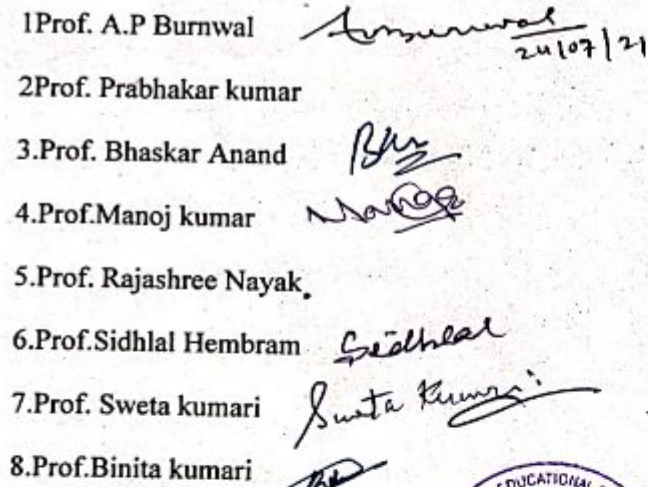 1Prof. A.P Burnwal
24/07/21
2Prof. Prabhakar kumar
3.Prof. Bhaskar Anand
4.Prof.Manoj kumar Manoj
5.Prof. Rajashree Nayak.
6.Prof.Sidhlal Hembram Sidhlal
7.Prof. Sweta kumari Sweta Kumari
8.Prof.Binita kumari
EDUCATIONAL